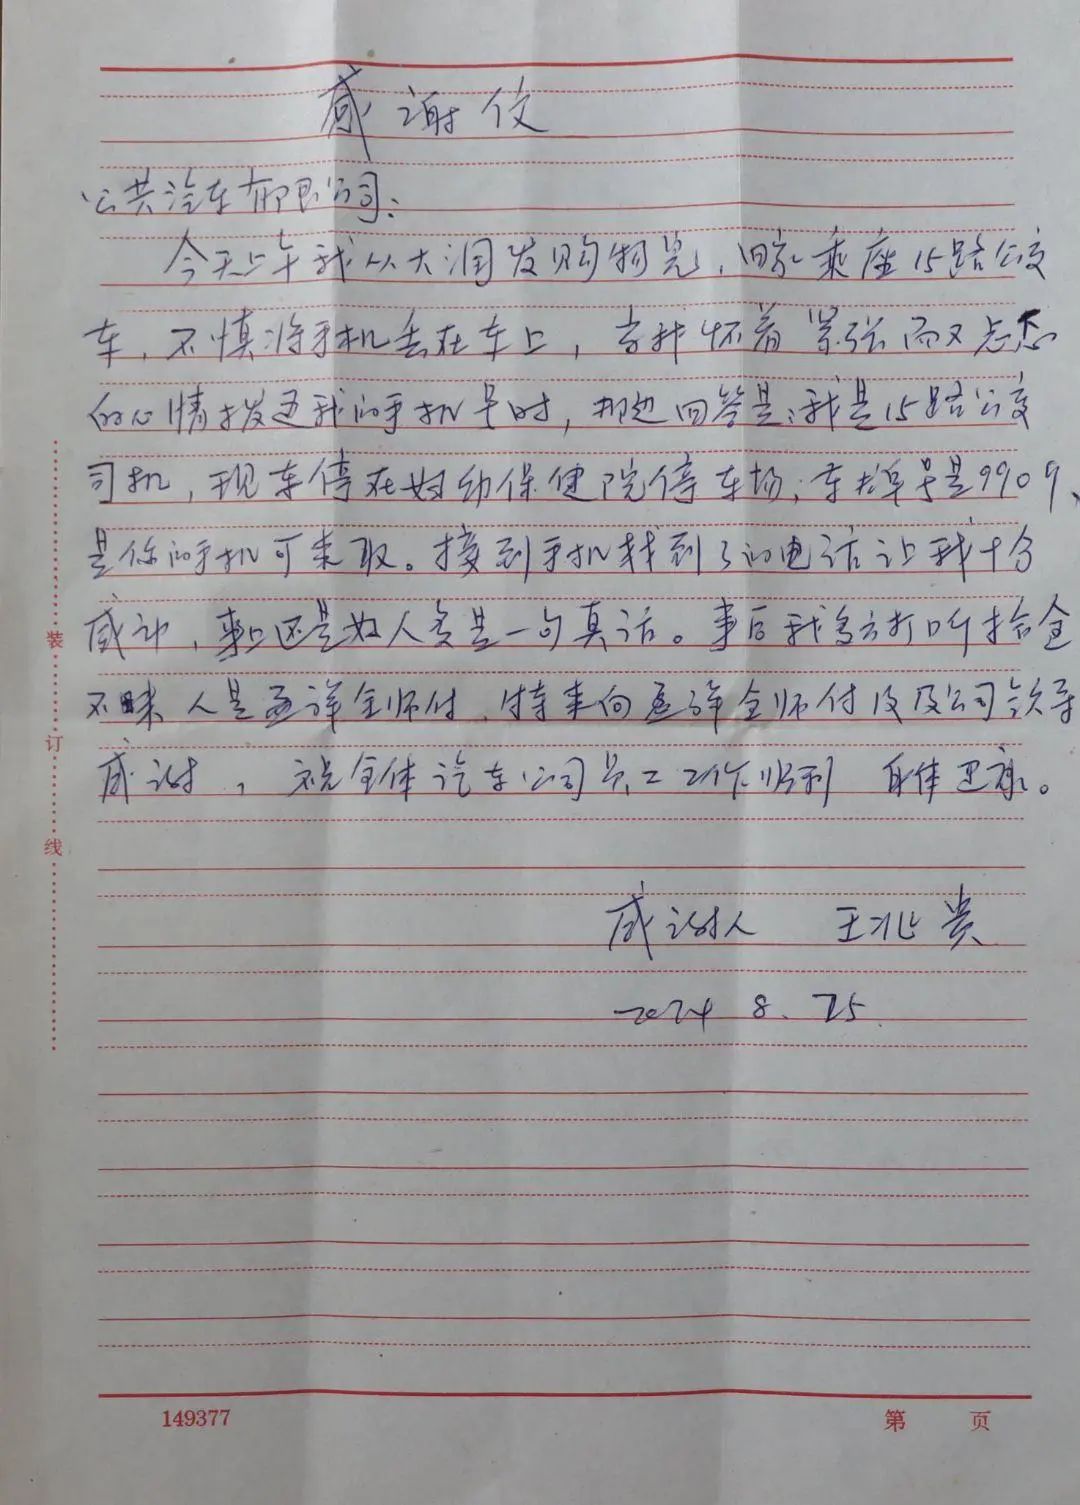 感谢信
公共汽车有限公司：
今天上午我从大润发购物完，回家乘座15路公交
车，不慎将手机丢在车上，当我怀着紧张而又忐忑
的心情拨通我的手机号时，那边回答是：我是15路公交
司机，现车停在妇幼保健院停车场；车牌号是9909、
是你的手机可来取。接到手机找到了的电话让我十分
感动，事上还是好人多是一句真话。事后我多方打听拾金
不昧人是孟祥全师付，特来向孟祥全师付及及公司领导
感谢，祝全体汽车公司员工工作顺利 身体卫康。
感谢人 王兆贵
2024 8.25
装
订
线
149377
第 页